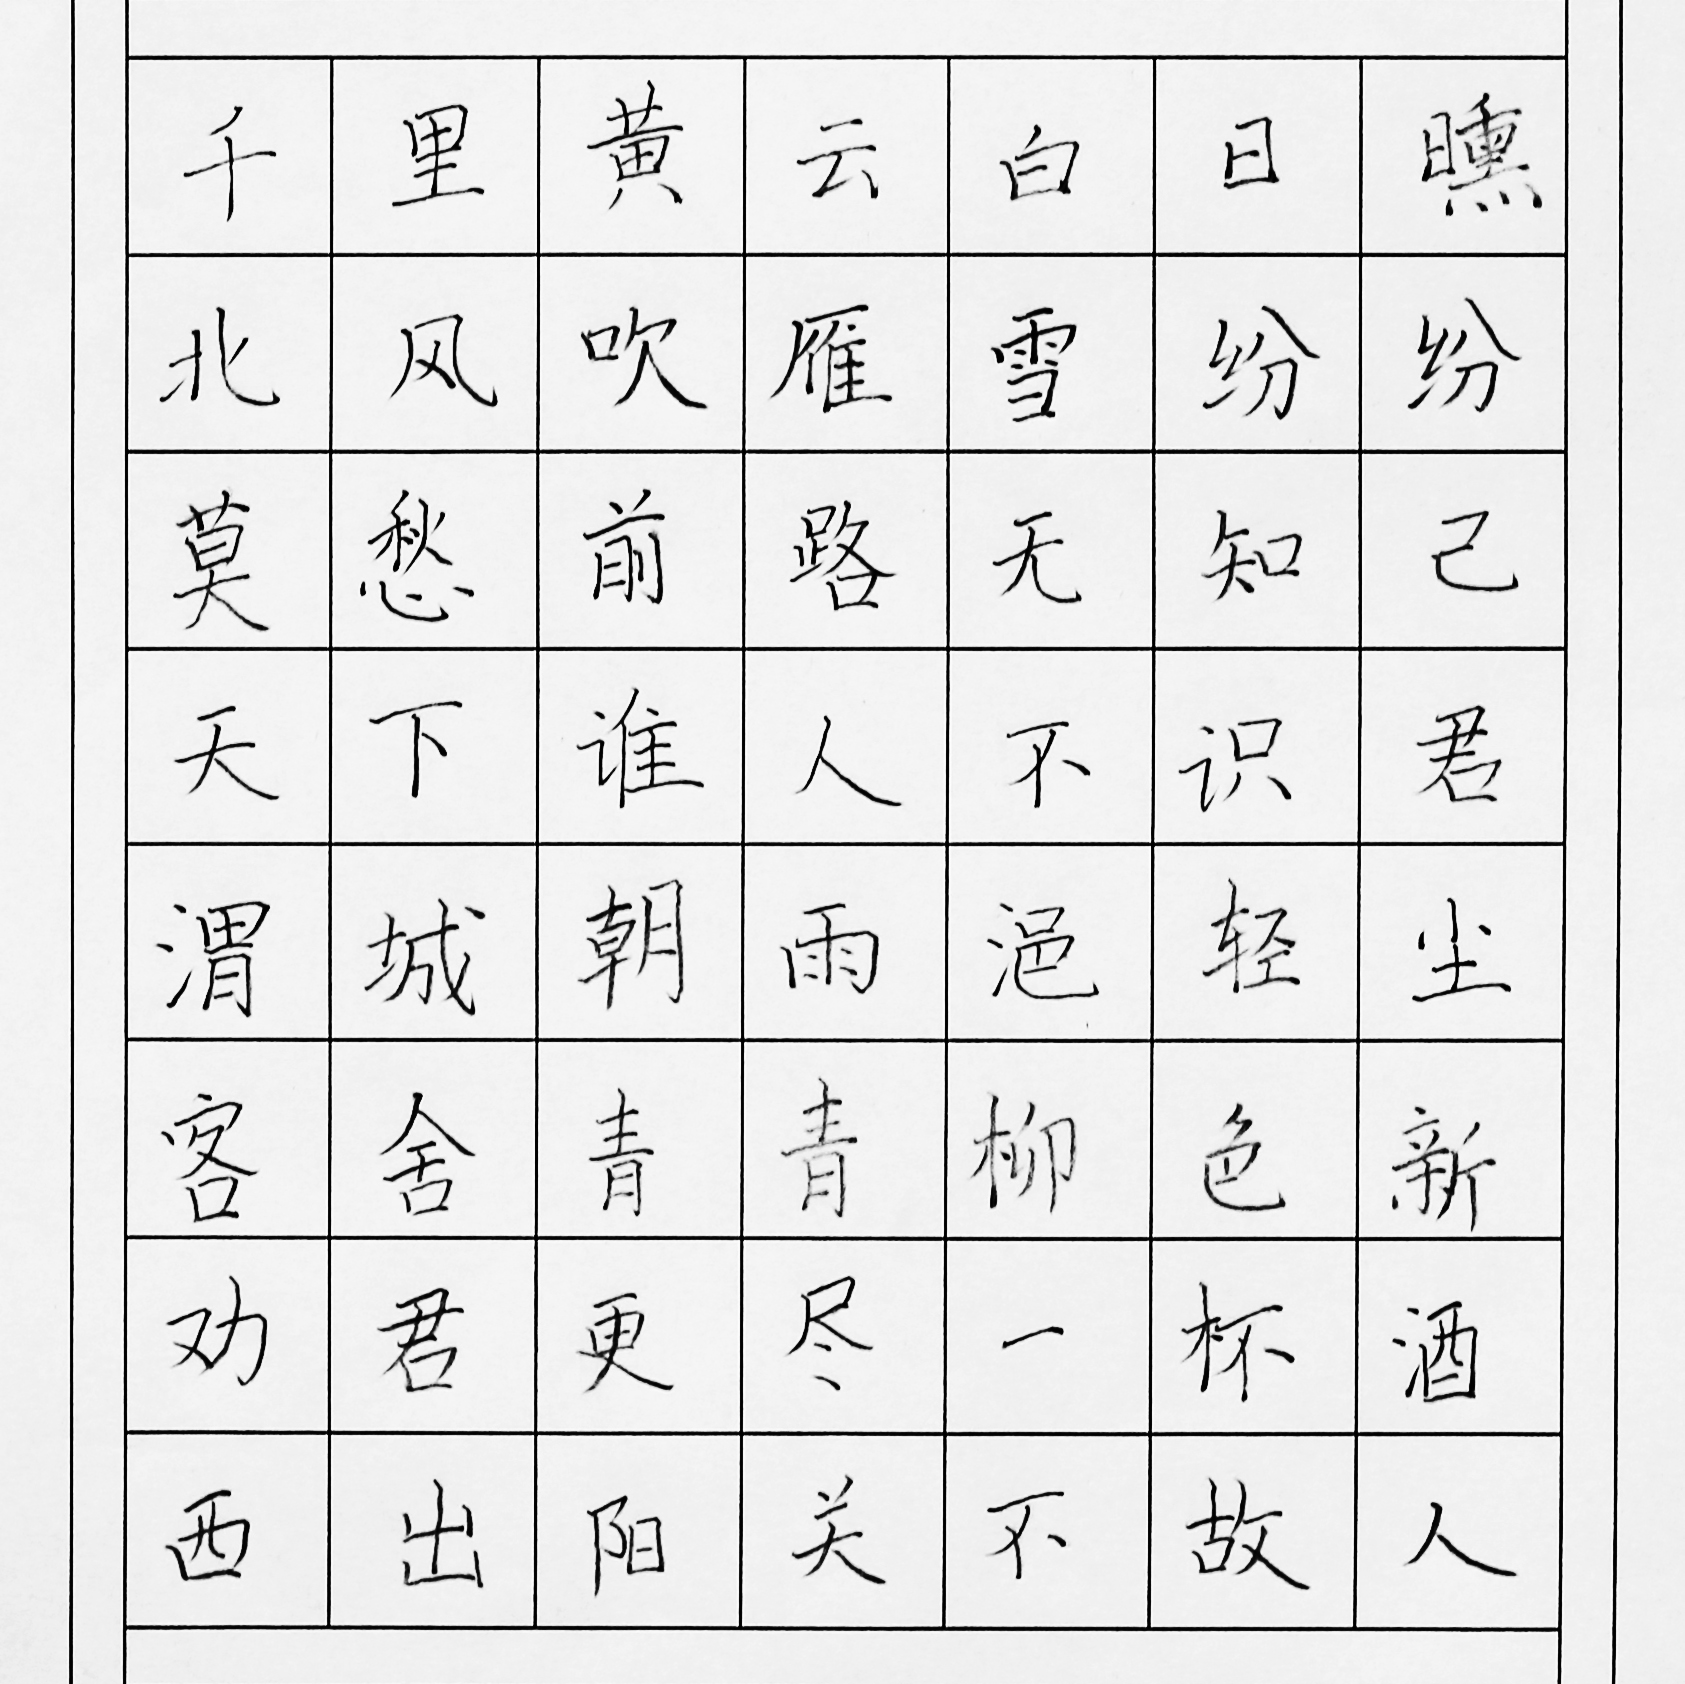 千里黄云白日曛
北风吹雁雪纷纷
莫愁前路无知己
天下谁人不识君
渭城朝雨浥轻尘
客舍青青柳色新
劝君更尽一杯酒
西出阳关不故人